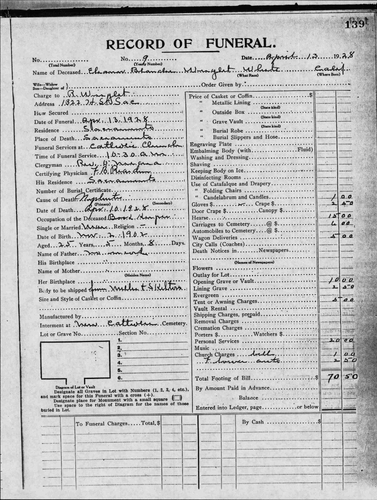 139
RECORD OF FUNERAL.
No. No. 9 Date April 12 1928
(Total Number) (Yearly Number)
Name of Deceased Eleanor Blanche Wright White Calif.
(What Race) (Where Born)
Daughter of Order Given by
Charge to R. Wright
Address 1322 H St Sac
How Secured
Date of Funeral Apr. 12 1928
Residence Sacramento
Place of Death Sacramento
Funeral Services at Catholic Church
Time of Funeral Service 10-30 a.m.
Clergyman Rev.
Certifying Physician
His Residence Sacramento
Number of Burial Certificate
Cause of Death
Date of Death Apr. 10, 1928
Occupation of the Deceased Book Keeper
Single or Married Religion
Date of Birth 1902
Aged 25 Years 5 Months 8 Days
Name of Father
His Birthplace
Name of Mother
(Maiden Name)
Her Birthplace
Body to be shipped from Miller &
Size and Style of Casket or Coffin
Manufactured by
Interment at New Catholic Cemetery.
Lot or Grave No. Section No.
1
2
3
4
5
6
Diagram of Lot or Vault
Designate all Graves in Lot with Numbers (1, 2, 3, 4, etc.),
and mark space for this Funeral with a cross (+).
Designate place for Monument with a small square
Use space to the right of Diagram for the names of those
buried in Lot.
Price of Casket or Coffin $
Metallic Lining
(State kind)
" Outside Box
(State kind)
" Grave Vault
(State kind)
" Burial Robe
(State kind)
" Burial Slippers and Hose
Engraving Plate
Embalming Body (with Fluid)
Washing and Dressing
Shaving
Keeping Body on Ice
Disinfecting Rooms
Use of Catafalque and Drapery
" Folding Chairs
" Candelabrum and Candles 1 00
Gloves $ Crape $ 2 50
Door Crape $ Canopy $
Hearse 15 00
Carriages to Cemetery @ $
Automobiles to Cemetery @ $
Wagon Deliveries 5 00
City Calls (Coaches)
Death Notices in Newspapers
(Names of Newspapers)
Flowers
Outlay for Lot
Opening Grave or Vault 10 00
Lining Grave
Evergreen
Tent or Awning Charges
Vault Rental
Shipping Charges, prepaid
Removal Charges
Cremation Charges
Porters $ Watchers $
Personal Services 20 00
Music
Church Charges
Flower auto
Total Footing of Bill $ 70 50
By Amount Paid in Advance
Balance $
Entered into Ledger, page or below.
To Funeral Charges, Total $ By Cash $